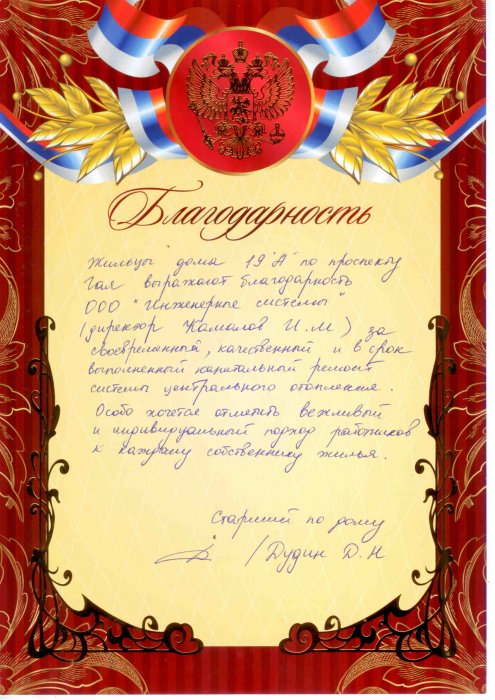 Благодарность
Жильцы дома 19 "А" по проспекту
Гая выражают благодарность
ООО "Инженерные системы"
(директор Камалов И.М) за
своевременный, качественный и в срок
выполненный капитальный ремонт
системы центрального отопления.
Особо хочется отметить вежливый
и индивидуальный подход работников
к каждому собственнику жилья.
Старший по дому
/Дудин Д.Н